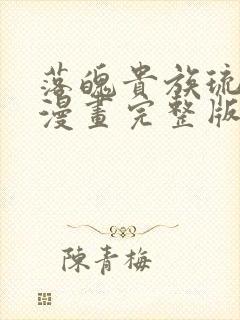 落魄貴族琉
漫畫完整版
陳青梅